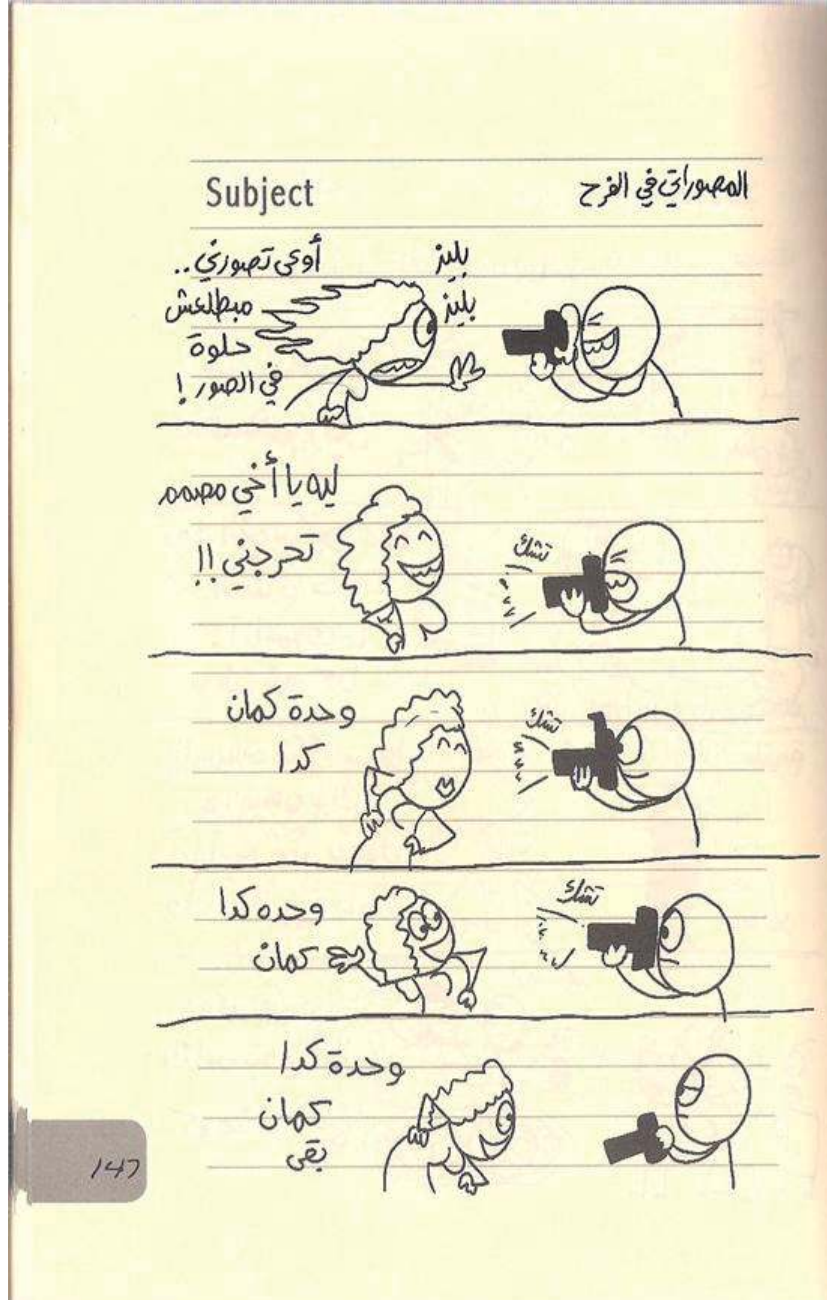 Subject
المصوراتي في الفرح
بليز
بليز
أوعى تصورني..
مبطلعش
حلوة
في الصور!
ليه يا أخي مصمم
تحرجني!!
تشك
وحدة كمان
كدا
تشك
وحده كدا
كمان
تشك
وحدة كدا
كمان
بقى
147